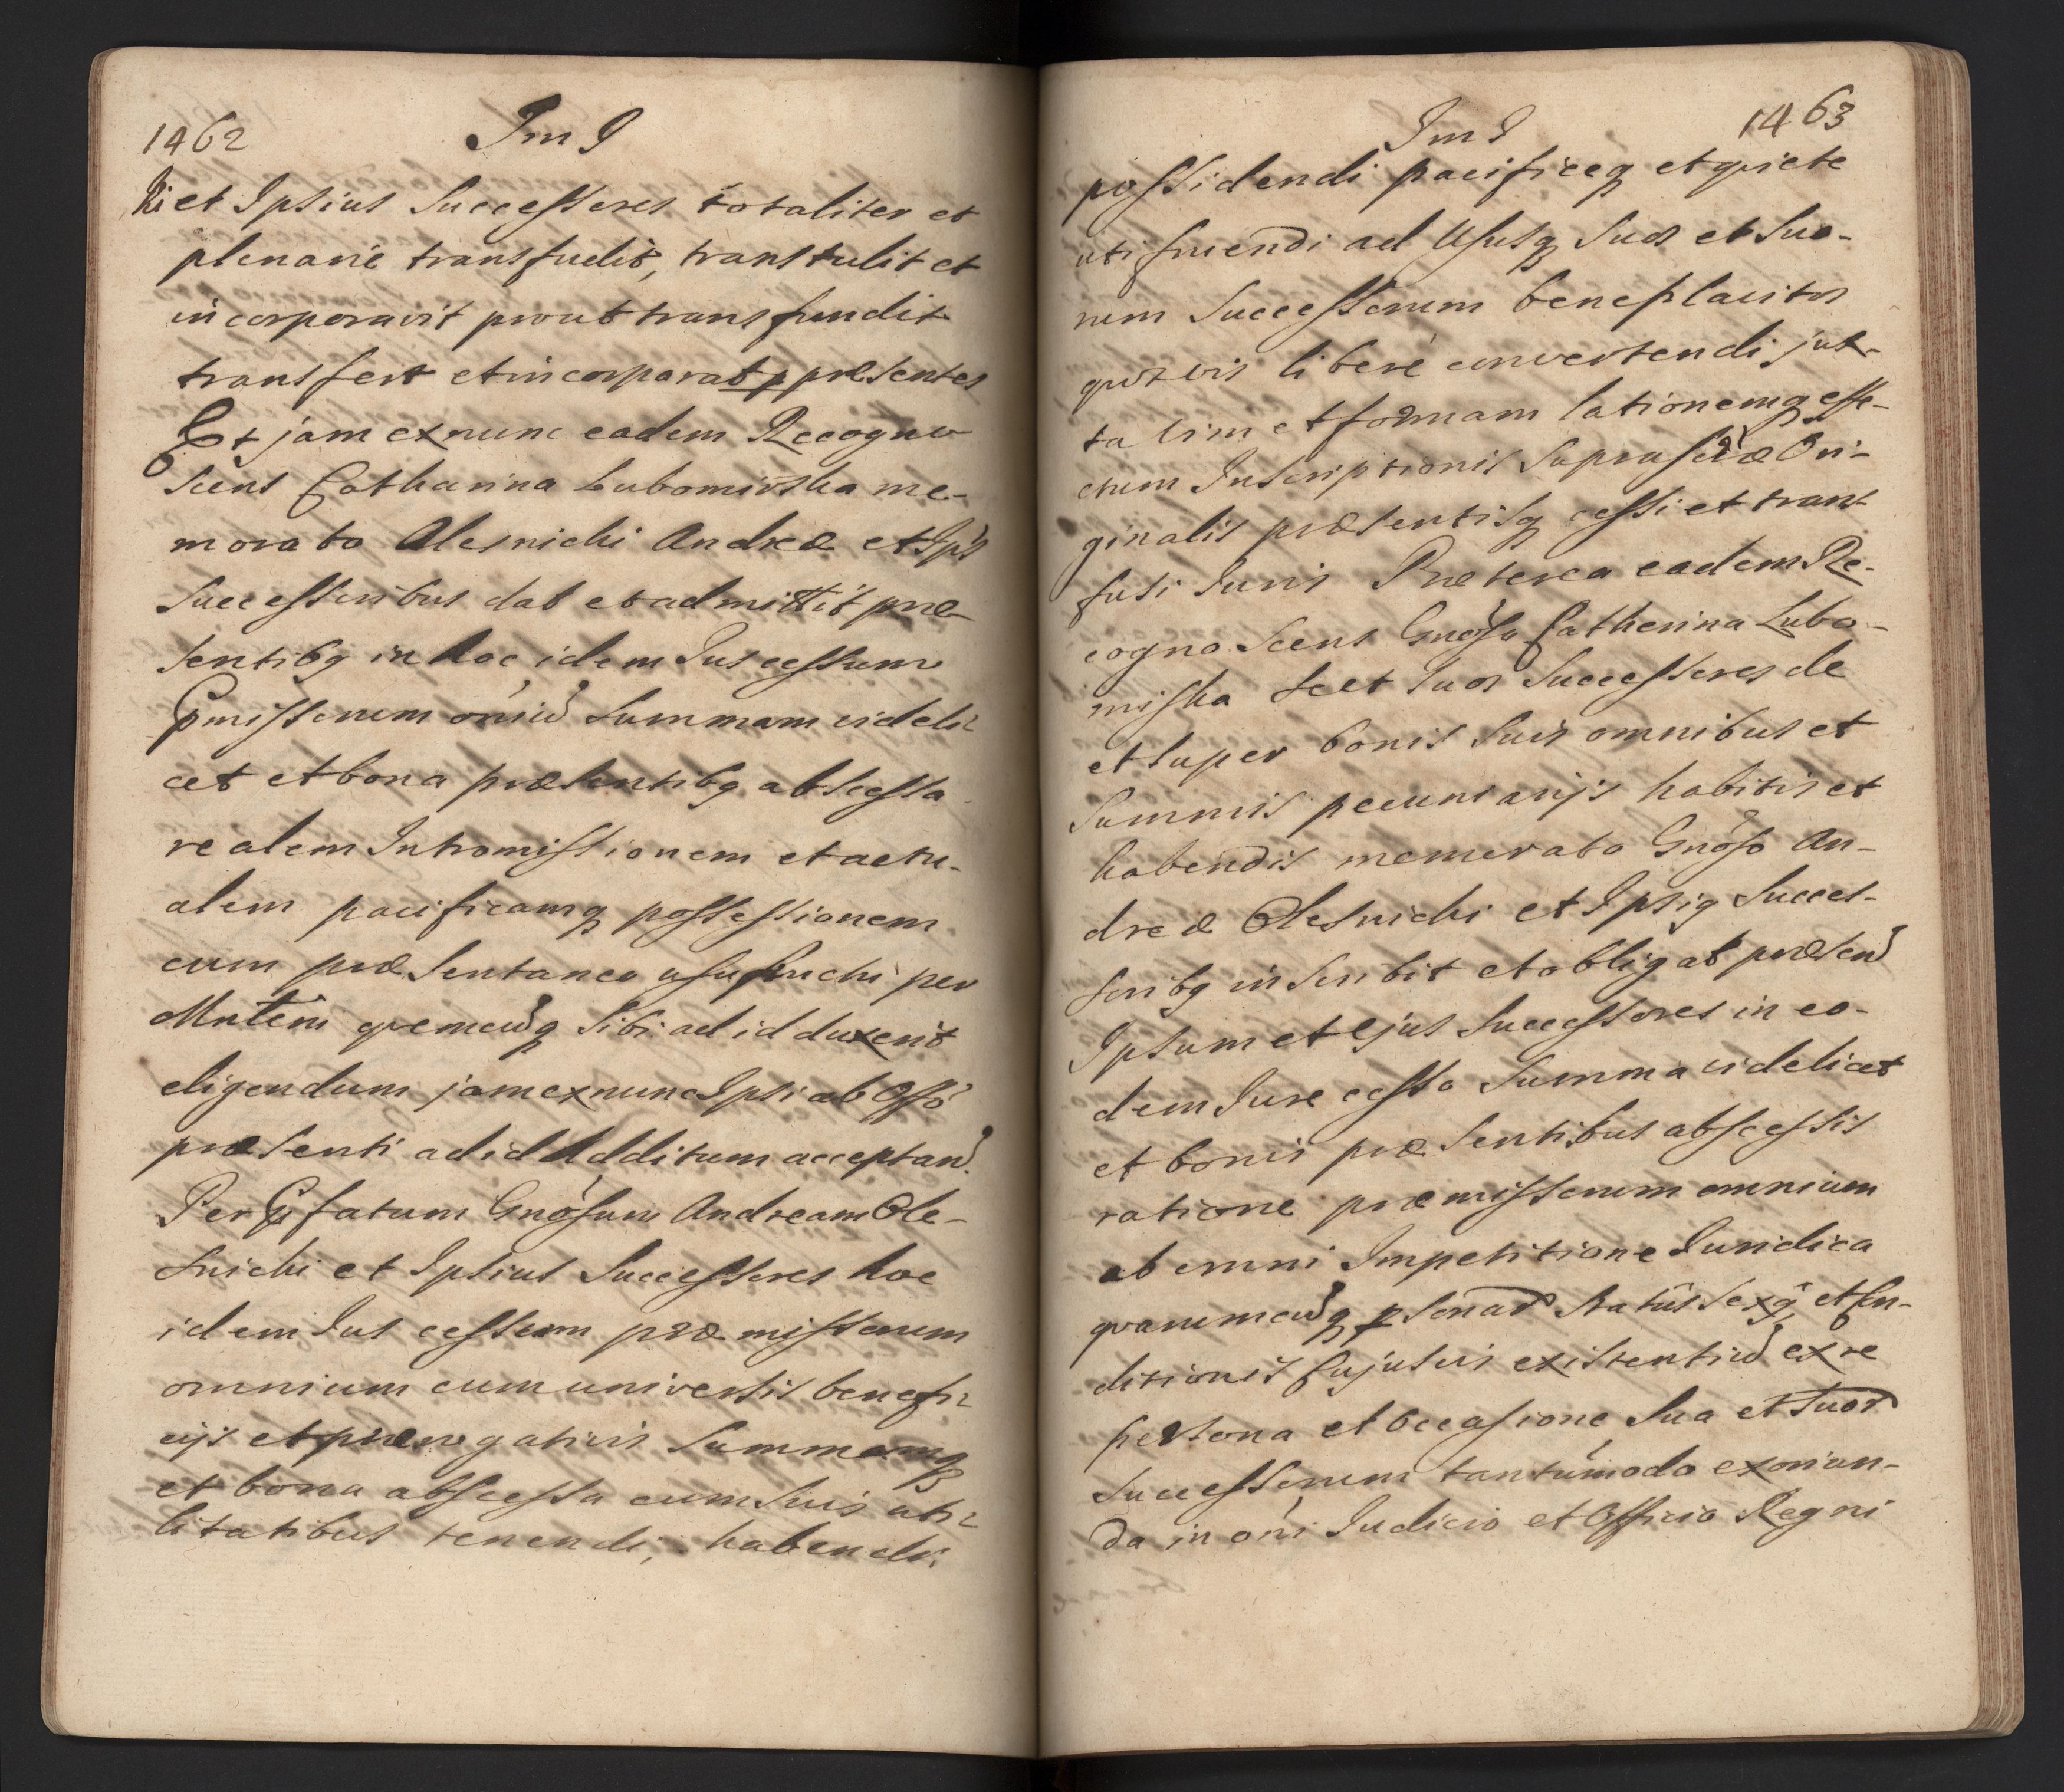 1462
Im I
ki et Ipsius Successores totaliter et
plenarie transfudit, transtulit et
incorporavit prout transfundit
transfert et incorporat p præsentes
Et jam exnunc eadem Recogno
scens Catharina Lubomirska me-
morato Olesnicki Andreæ et Ip's
Successoribus dat et admittit præ
sentibq in hoc idem Jus cessum
Pmissorum oniu Summam videli
cet et bona præsentibq abscessa
realem Intromissionem et actu-
alem pacificamq possessionem
cum præsentaneo usufructu per
Mntem qvemcuq sibi ad id duxerit
eligendum jam exnunc Ipsi ab Offo
præsenti ad id Additum acceptan.
Per Pfatum Gnosum Andream Ole-
snicki et Ipsius Successores hoc
idem Jus cessum præmissorum
omnium cum universis benefi
cijs et prærogativis Summamq
et bona abscessa cum suis uti
litatibus tenendi, habendi
1463
Im I
possidendi pacificeq et qviete
utifruendi ad Ususq suos et suo-
rum Successorum beneplacitos
qvosvis libere convertendi jux-
ta vim et formam lationemq effe-
ctum Inscriptionis suprascæ Ori-
ginalis præsentisq cessi et trans
fusi Juris Præterea eadem Re-
cognoscens Gnosa Catherina Lubo-
miska se et suos Successores de
et super bonis suis omnibus et
Summis pecuniarijs habitis et
habendis memorato Gnoso An-
dreæ Olesnicki et Ipsiq Succes-
soribq inscribit et obligat præsen
Ipsum et Ejus Successores in eo-
dem Jure cesso Summa videlicet
et bonis præsentibus abscessis
ratione præmissorum omnium
ab omni Impetitione Juridica
qvarumcuq psonar Status Sexq et Con-
ditionis Cujusvis existentiu ex re
persona et occasione sua et suor
Successorum tantumodo exorian-
da in oni Judicio et Officio Regni